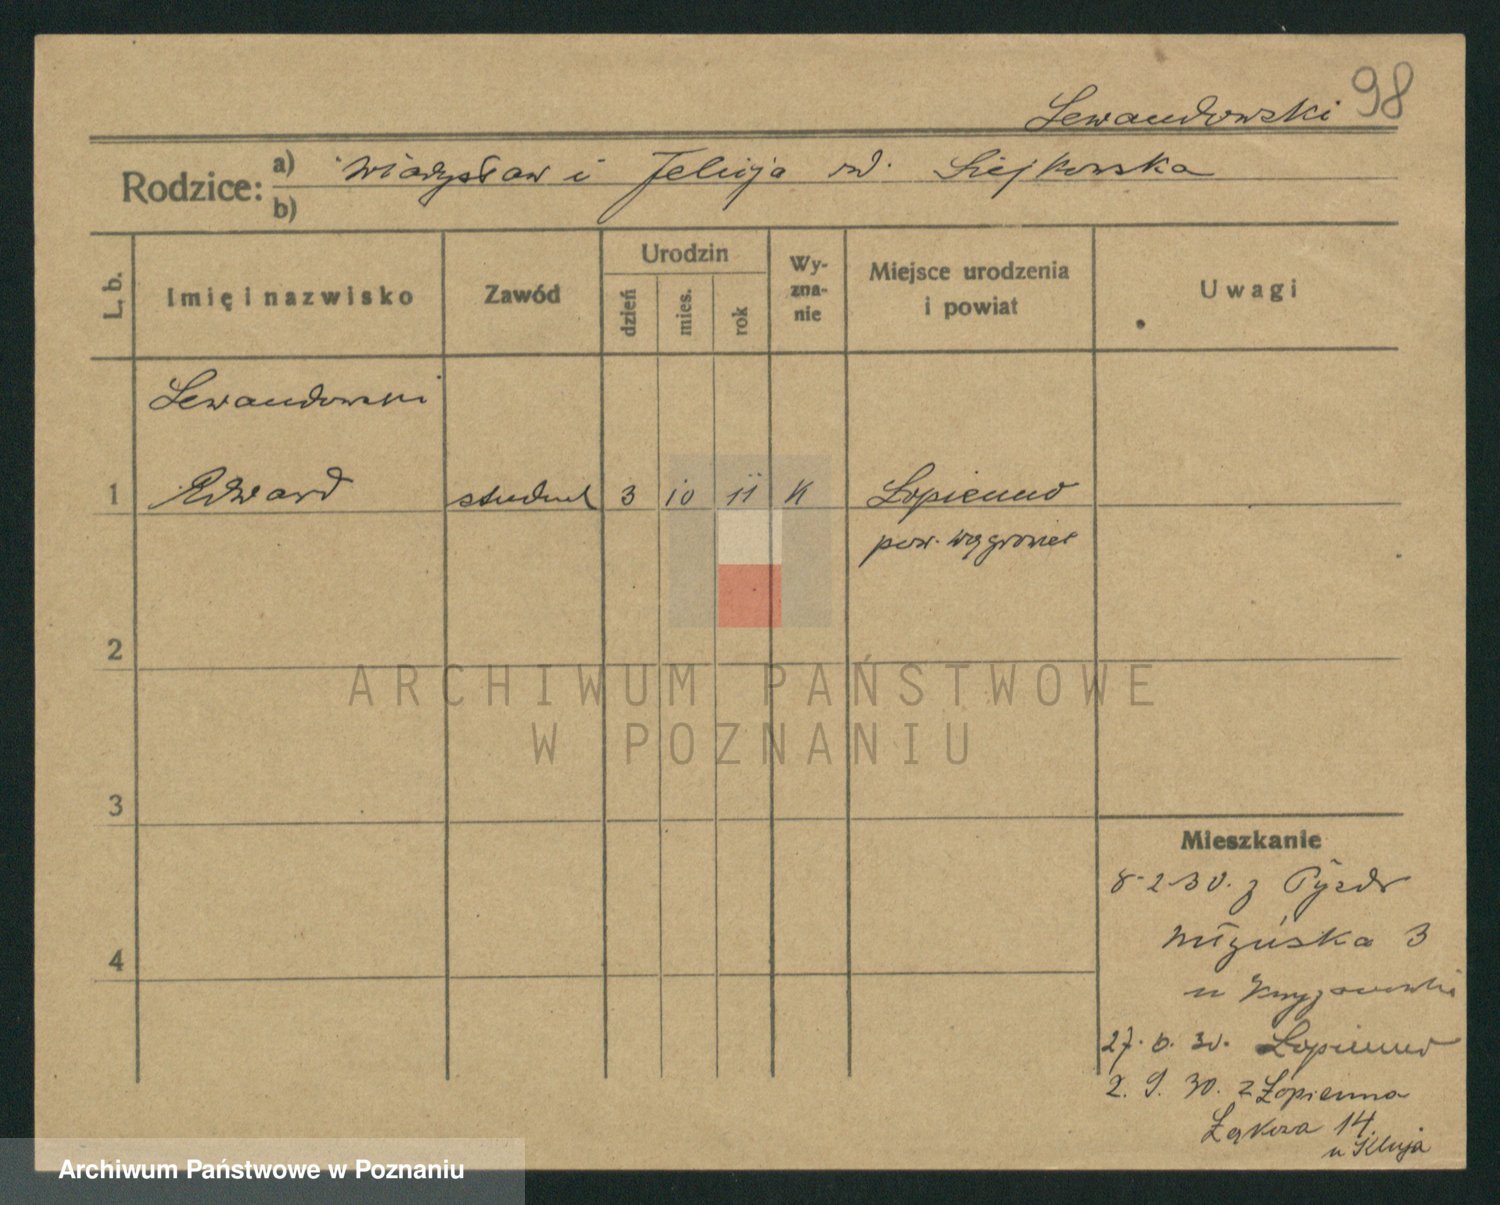 98
Lewandowski
Rodzice:
a) Władysław i Felicja
b)
L. b.
Imię i nazwisko
Zawód
Urodzin
dzień
mies.
rok
Wy-
zna-
nie
Miejsce urodzenia
i powiat
Uwagi
Lewandowski
1 Edward student 3 10 11 K Łopienno
pow. Wągrowiec
2
3
4
ARCHIWUM PAŃSTWOWE
W POZNANIU
Mieszkanie
8-2-30. z Pyzdr
3
u
27. 6. 30. Łopienno
2. 9. 30. z Łopienna
Łąkowa 14
u
Archiwum Państwowe w Poznaniu